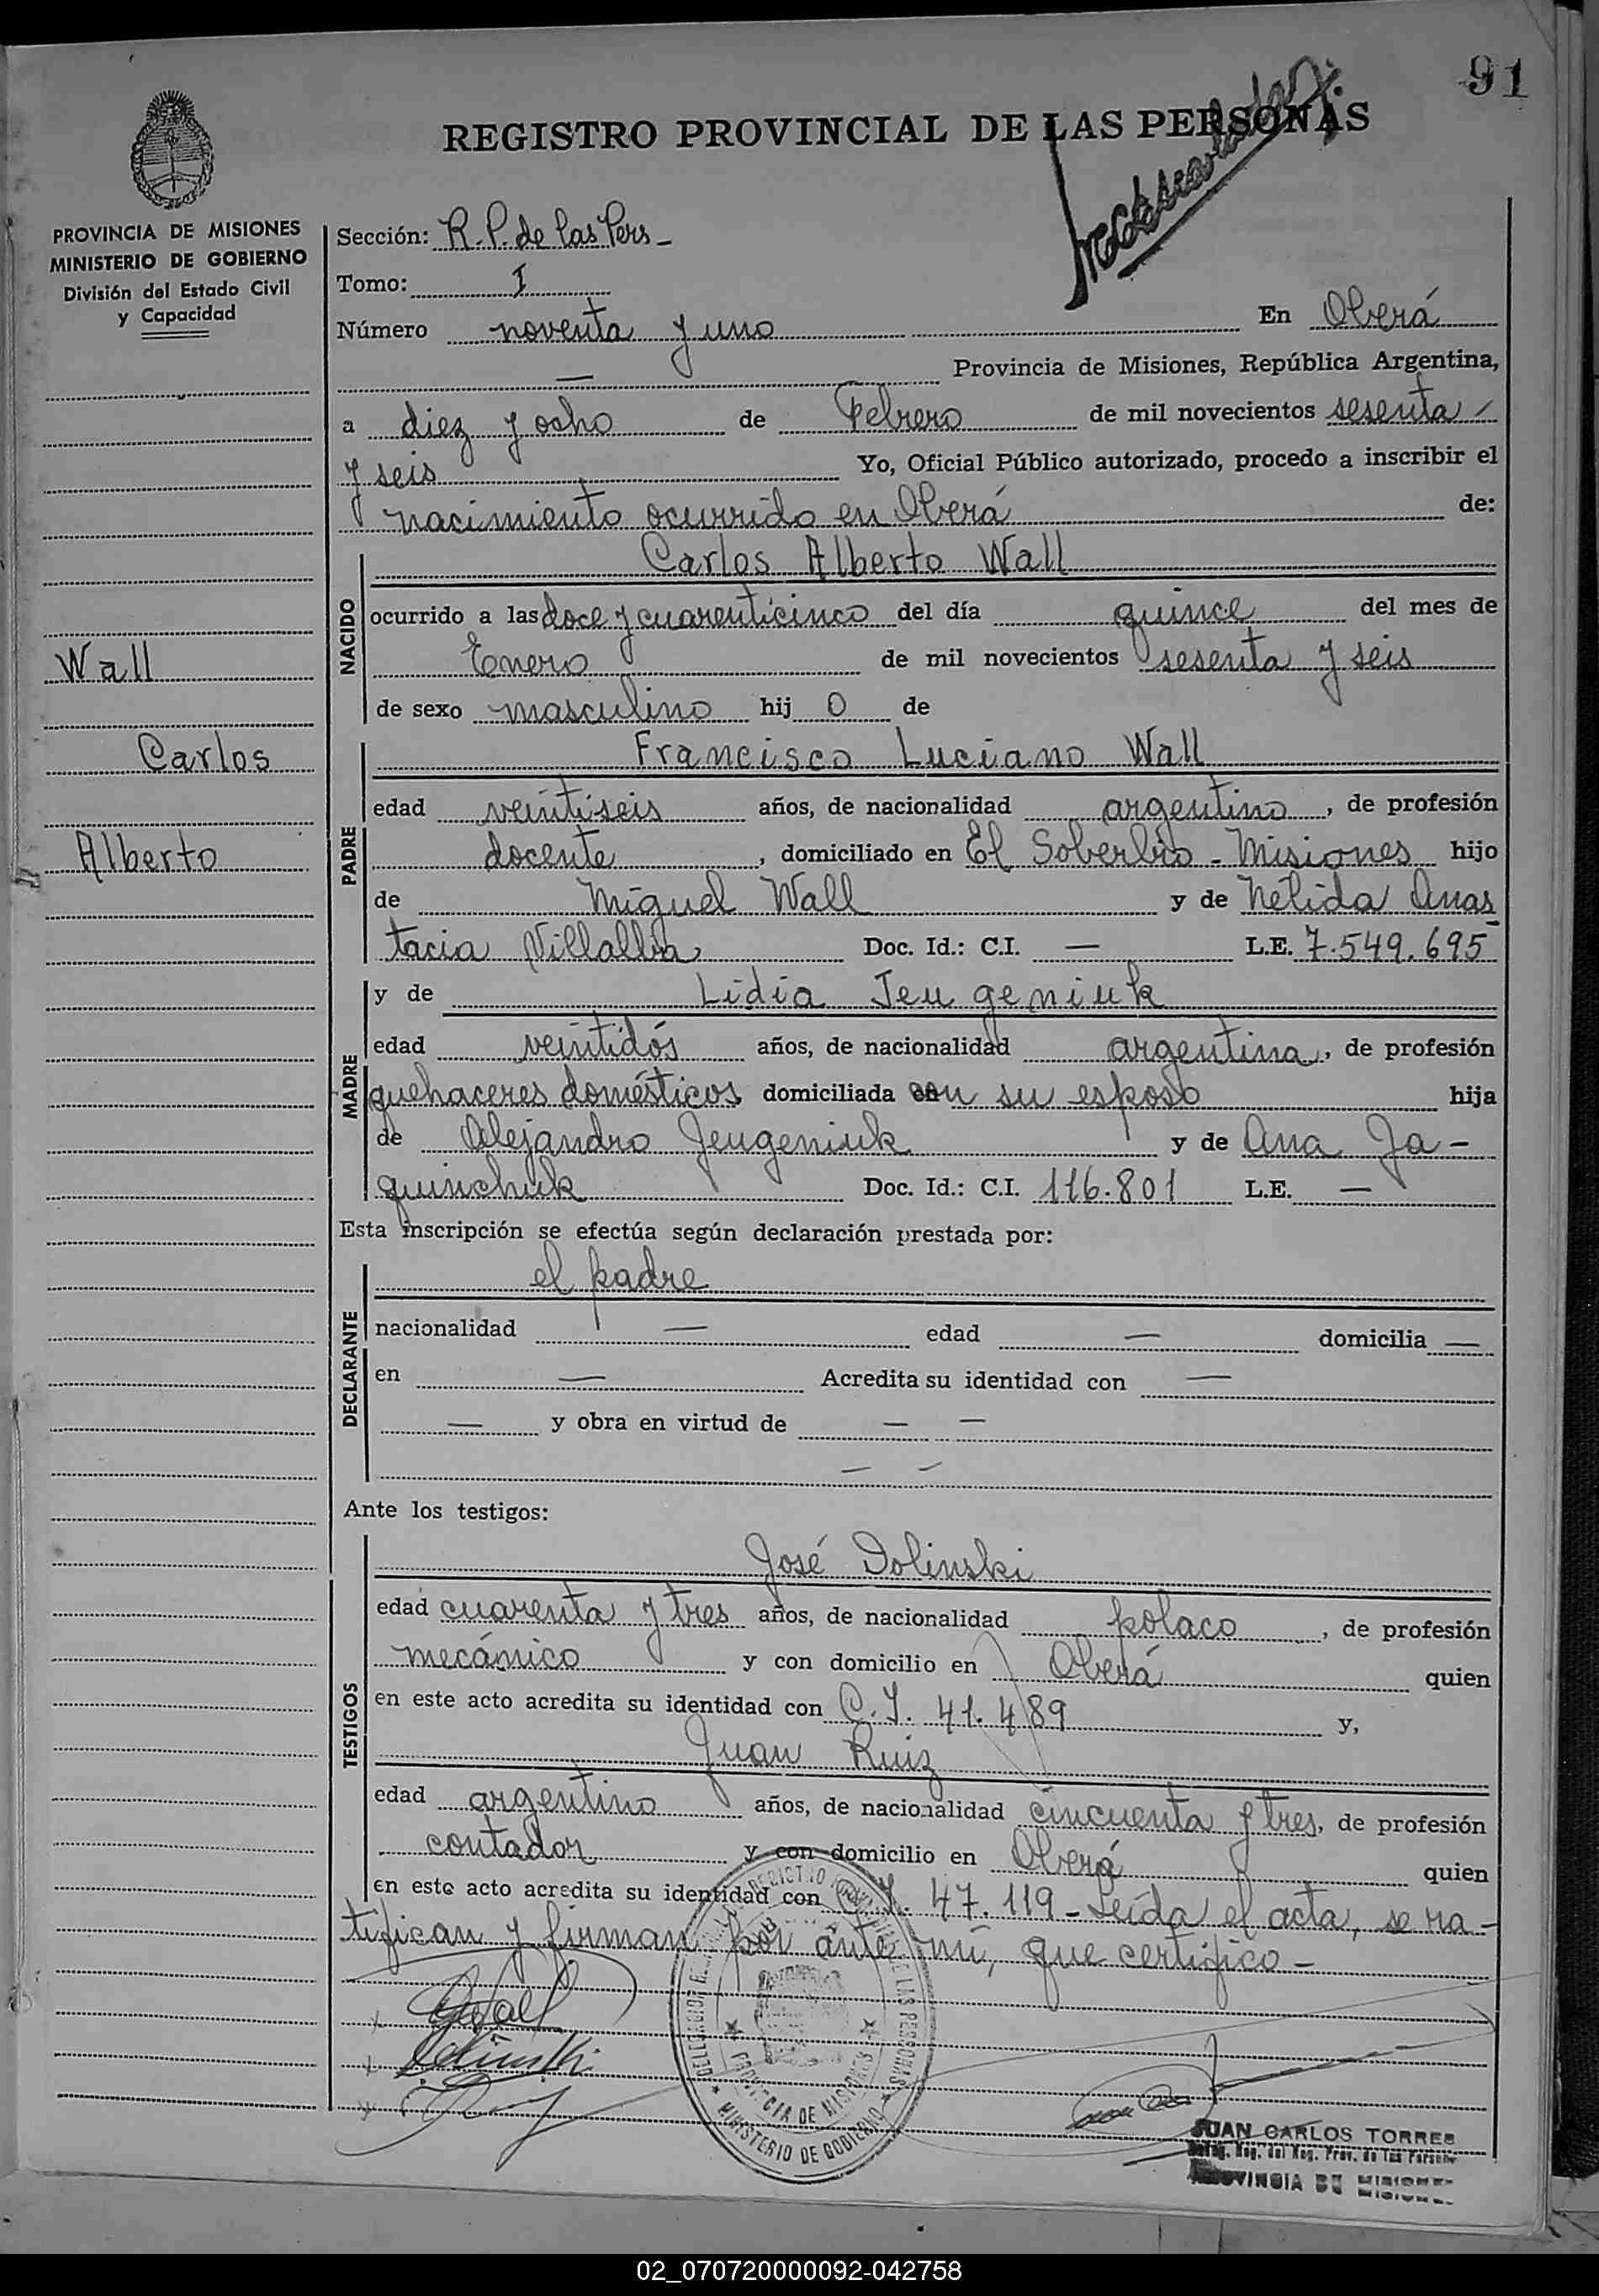 91
REGISTRO PROVINCIAL DE LAS PERSONAS
PROVINCIA DE MISIONES
MINISTERIO DE GOBIERNO
División del Estado Civil
y Capacidad
Wall
Carlos
Alberto
Sección: R. P. de las Pers -
Tomo: I
Número noventa y uno En Oberá
— Provincia de Misiones, República Argentina,
a diez y ocho de Febrero de mil novecientos sesenta
y seis Yo, Oficial Público autorizado, procedo a inscribir el
nacimiento ocurrido en Oberá de:
NACIDO
Carlos Alberto Wall
ocurrido a las doce y cuarenticinco del día quince del mes de
Enero de mil novecientos sesenta y seis
de sexo masculino hij o de
PADRE
Francisco Luciano Wall
edad veintiseis años, de nacionalidad argentino, de profesión
docente, domiciliado en El Soberbio - Misiones hijo
de Miguel Wall y de Nélida Anas
tacia Villalba Doc. Id.: C.I. — L.E. 7.549.695
MADRE
y de Lidia Jeugeniuk
edad veintidós años, de nacionalidad argentina, de profesión
quehaceres domésticos domiciliada con su esposo hija
de Alejandro Jeugeniuk y de Ana Ja-
quinchuk Doc. Id.: C.I. 116.801 L.E. —
Esta inscripción se efectúa según declaración prestada por:
DECLARANTE
el padre
nacionalidad — edad — domicilia —
en — Acredita su identidad con —
— y obra en virtud de — —
— —
Ante los testigos:
TESTIGOS
José Dolinski
edad cuarenta y tres años, de nacionalidad polaco, de profesión
mecánico y con domicilio en Oberá quien
en este acto acredita su identidad con C.I. 41.489 y,
Juan Ruiz
edad argentino años, de nacionalidad cincuenta y tres, de profesión
contador y con domicilio en Oberá quien
en este acto acredita su identidad con C.I. 47.119 - Leída el acta, se ra-
tifican y firman por ante mí, que certifico -
PROVINCIA DE MISIONES
MINISTERIO DE GOBIERNO
JUAN CARLOS TORRES
PROVINCIA DE MISIONES
02_070720000092-042758